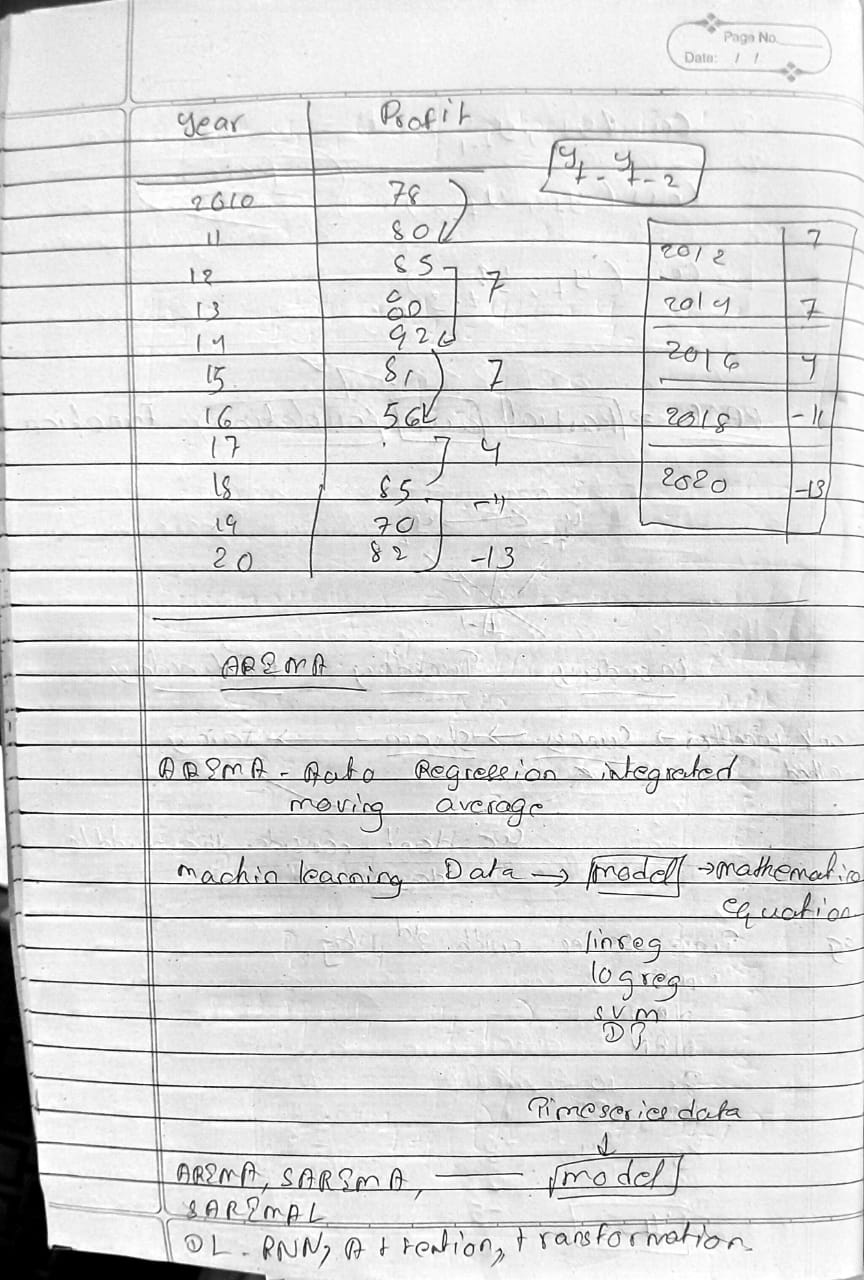 Page No.
Date: / /
Year Profit
y t - y t-2
2010 78
11 80
12 85 7
13 80
14 92
15 81 7
16 56
17 4
18 85 -11
19 70
20 82 -13
2012 7
2014 7
2016 4
2018 -11
2020 -13
ARIMA
ARIMA - Auto Regression integrated
moving average
machin learning Data → model → mathematic
equation
linreg
logreg
svm
DT
Timeseries data
↓
ARIMA, SARIMA, —— model
SARIMAL
DL - RNN, Attention, transformation